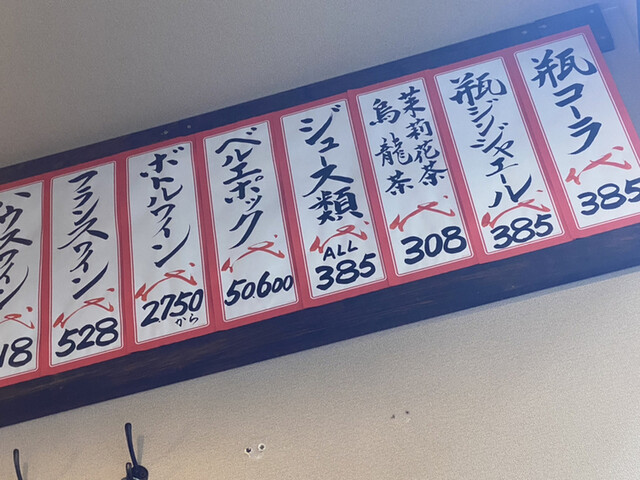 瓶コーラ
代
385
瓶ジンジャエール
代
385
茉莉花茶
烏龍茶
代
308
ジュース類
代
ALL
385
ベルエポック
代
50.600
ボトルワイン
代
2750
から
フランスワイン
代
528
ハウスワイン
代
18